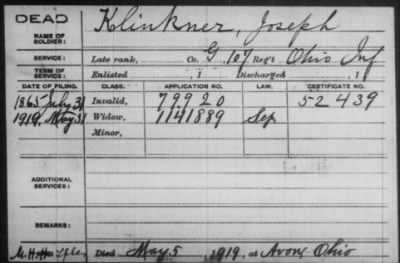 DEAD
NAME OF SOLDIER: Klinkner, Joseph
SERVICE: Late rank, Co. G, 107 Reg't Ohio Inf
TERM OF SERVICE: Enlisted , 1 Discharged , 1
DATE OF FILING. CLASS. APPLICATION NO. LAW. CERTIFICATE NO.
1865 July 31 Invalid, 79920 52439
1919, May 31 Widow, 1141889 Sep
Minor,
ADDITIONAL SERVICES:
REMARKS:
Died May 5, 1919, at Avon, Ohio